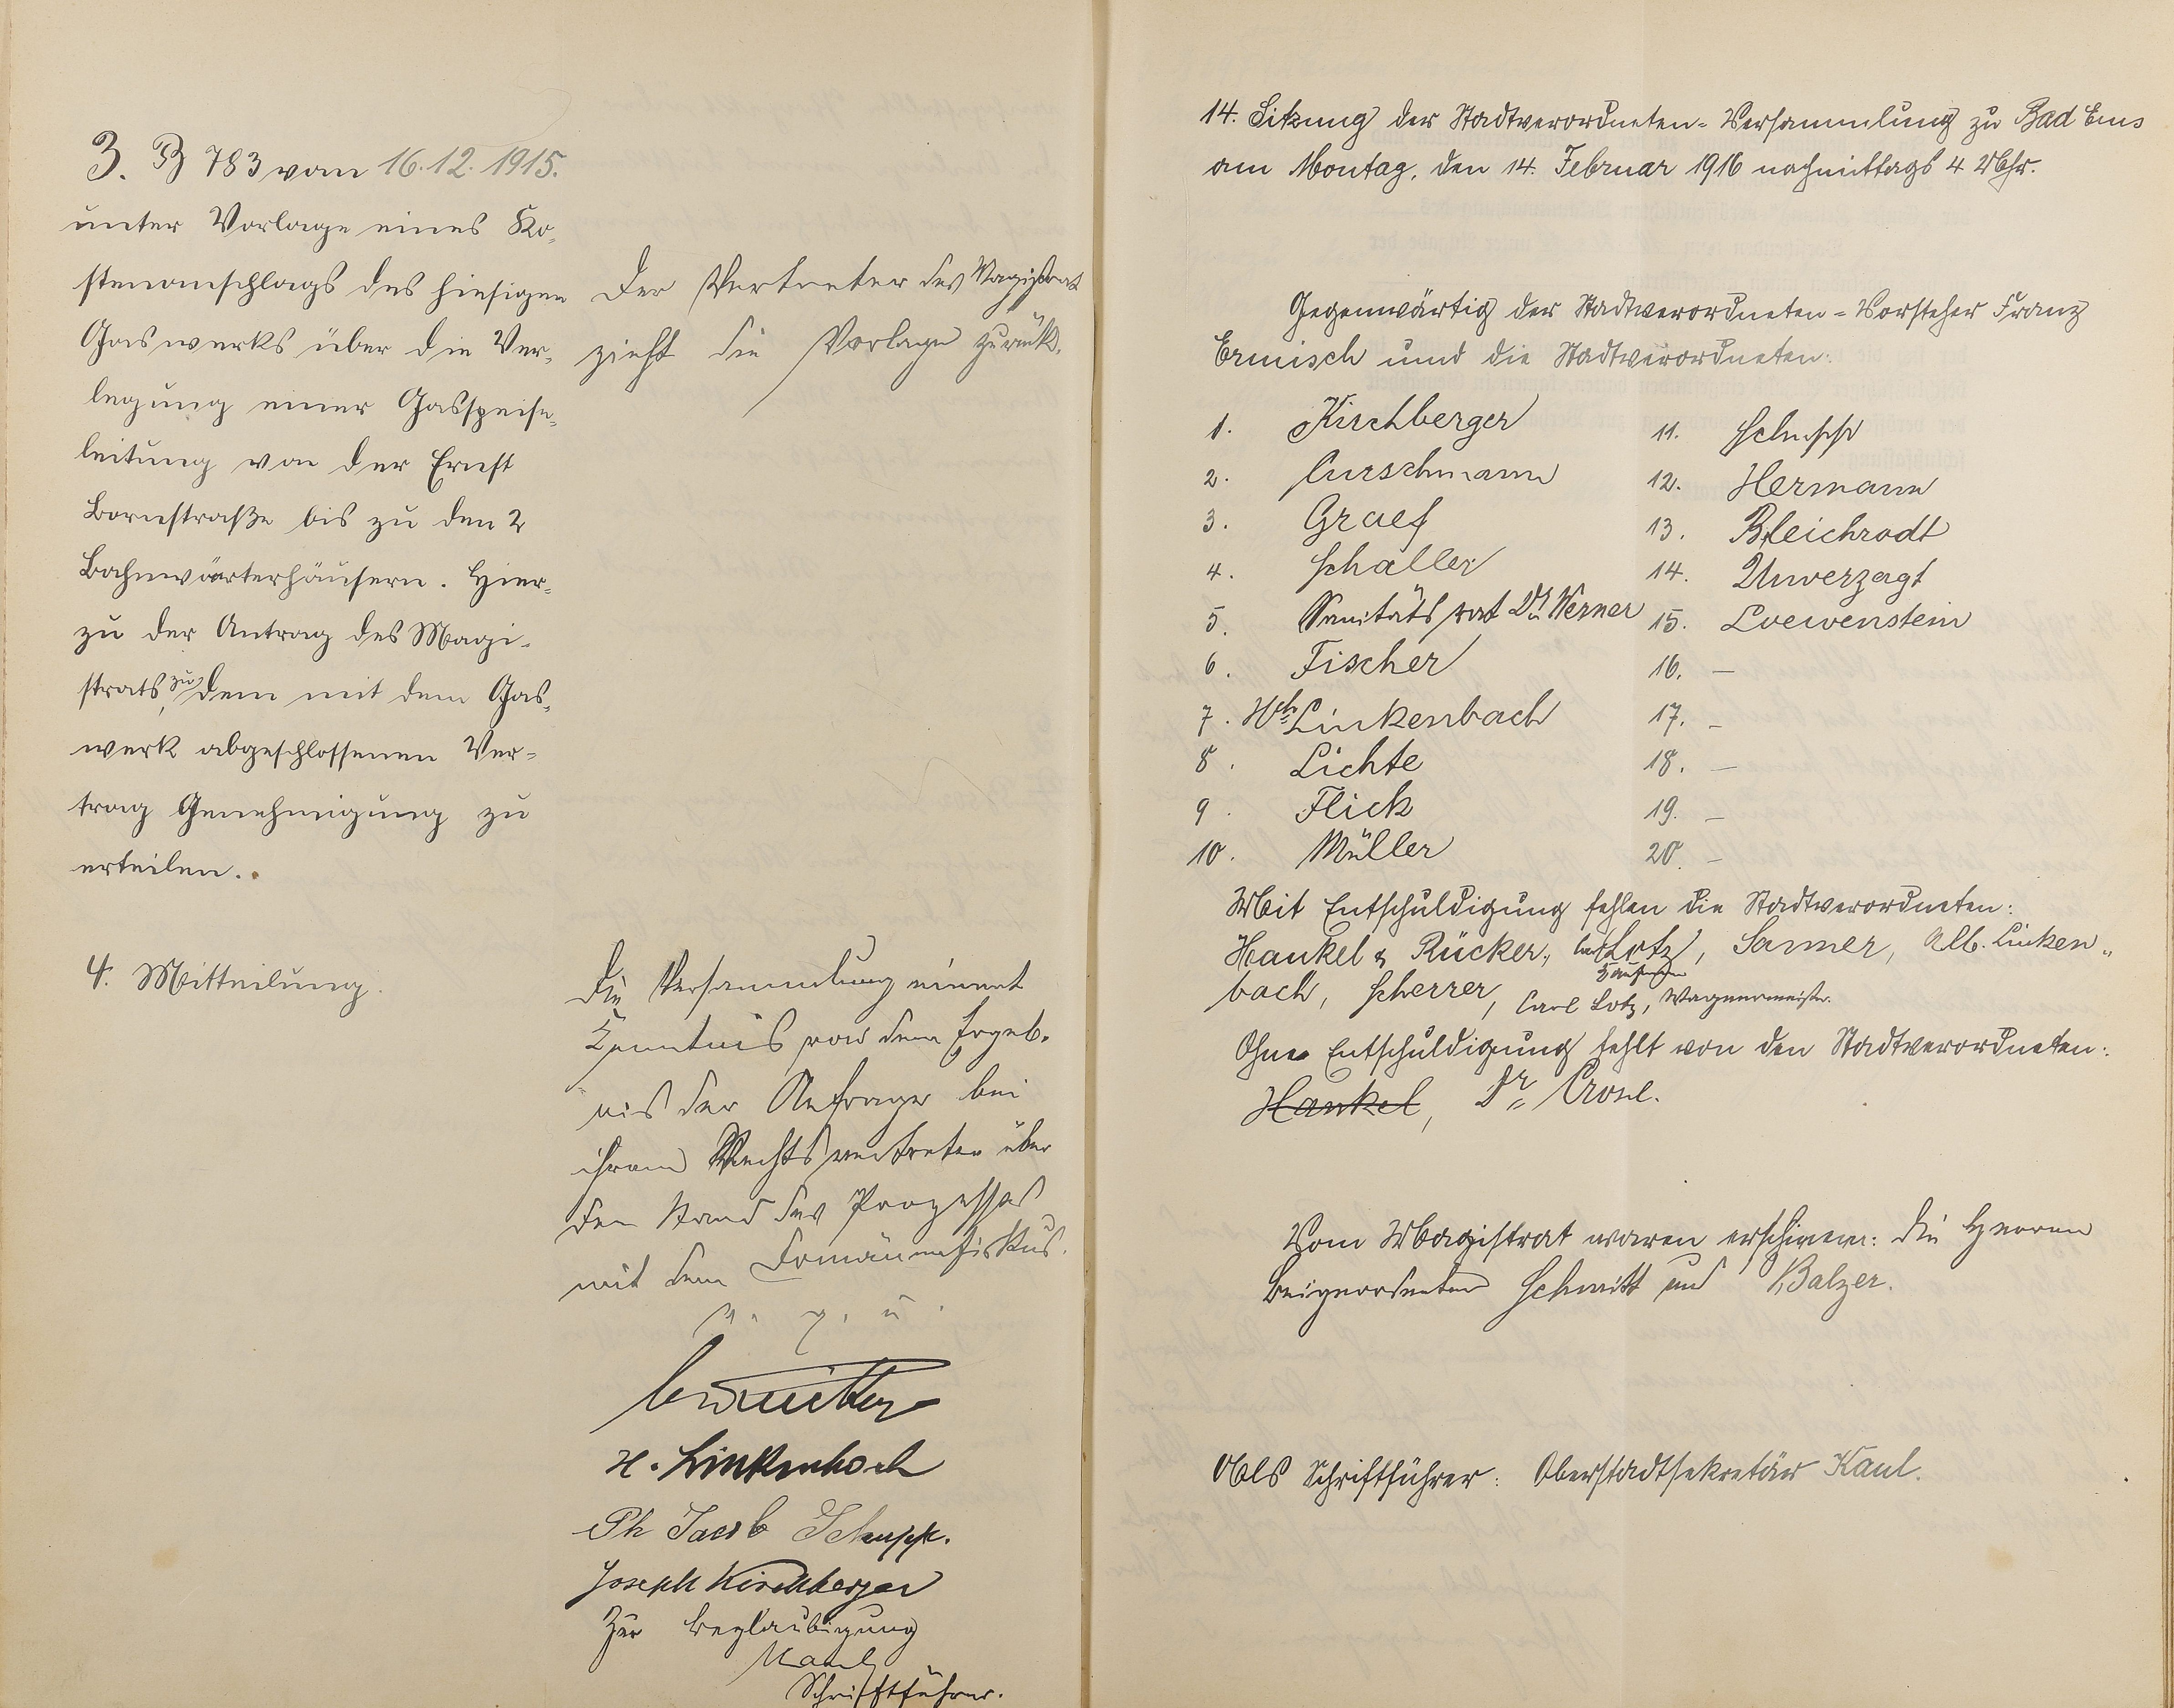 3. B 783 vom 16.12.1915.
unter Vorlage eines Ko-
stenanschlags des hiesigen
Gaswerks über die Ver-
legung einer Gasspeise-
leitung von der Ernst
Bornstraße bis zu den 2
Bahnwärterhäusern. Hier-
zu der Antrag des Magi-
strats, zu dem mit dem Gas-
werk abgeschlossenen Ver-
trag Genehmigung zu
erteilen.
Der Vertreter des Magistrat
zieht die Vorlage zurück.
4. Mitteilung.
Die Versammlung nimmt
Kenntnis von dem Ergeb-
nis der Anfrage bei
ihrem Rechtsvertreter über
den Stand des Prozesses
mit dem Domänenfiskus.
v. g. u.
H. Linkenbach
Ph Jacob Schupp.
Joseph Kirchberger
Zur Beglaubigung
Kaul
Schriftführer.
14. Sitzung der Stadtverordneten-Versammlung zu Bad Ems
am Montag, den 14. Februar 1916 nachmittags 4 Uhr.
Gegenwärtig der Stadtverordneten-Vorsteher Franz
Ermisch und die Stadtverordneten:
1. Kirchberger
2. Curschmann
3. Graef
4. Schaller
5. Sanitätsrat Dr Werner
6. Fischer
7. Hch Linkenbach
8. Lichte
9. Flick
10. Müller
11. Schupp
12. Hermann
13. Bleichrodt
14. Unverzagt
15. Loewenstein
16. –
17. –
18. –
19. –
20. –
Mit Entschuldigung fehlen die Stadtverordneten:
Hankel & Rücker, Lotz, Sanner, Alb. Linken-
bach, Scherrer, Carl Lotz, Wagnermeister.
Ohne Entschuldigung fehlt von den Stadtverordneten:
Hankel, Dr
Vom Magistrat waren erschienen: Die Herren
Beigeordneten Schmitt und Balzer.
Als Schriftführer: Oberstadtsekretär Kaul.